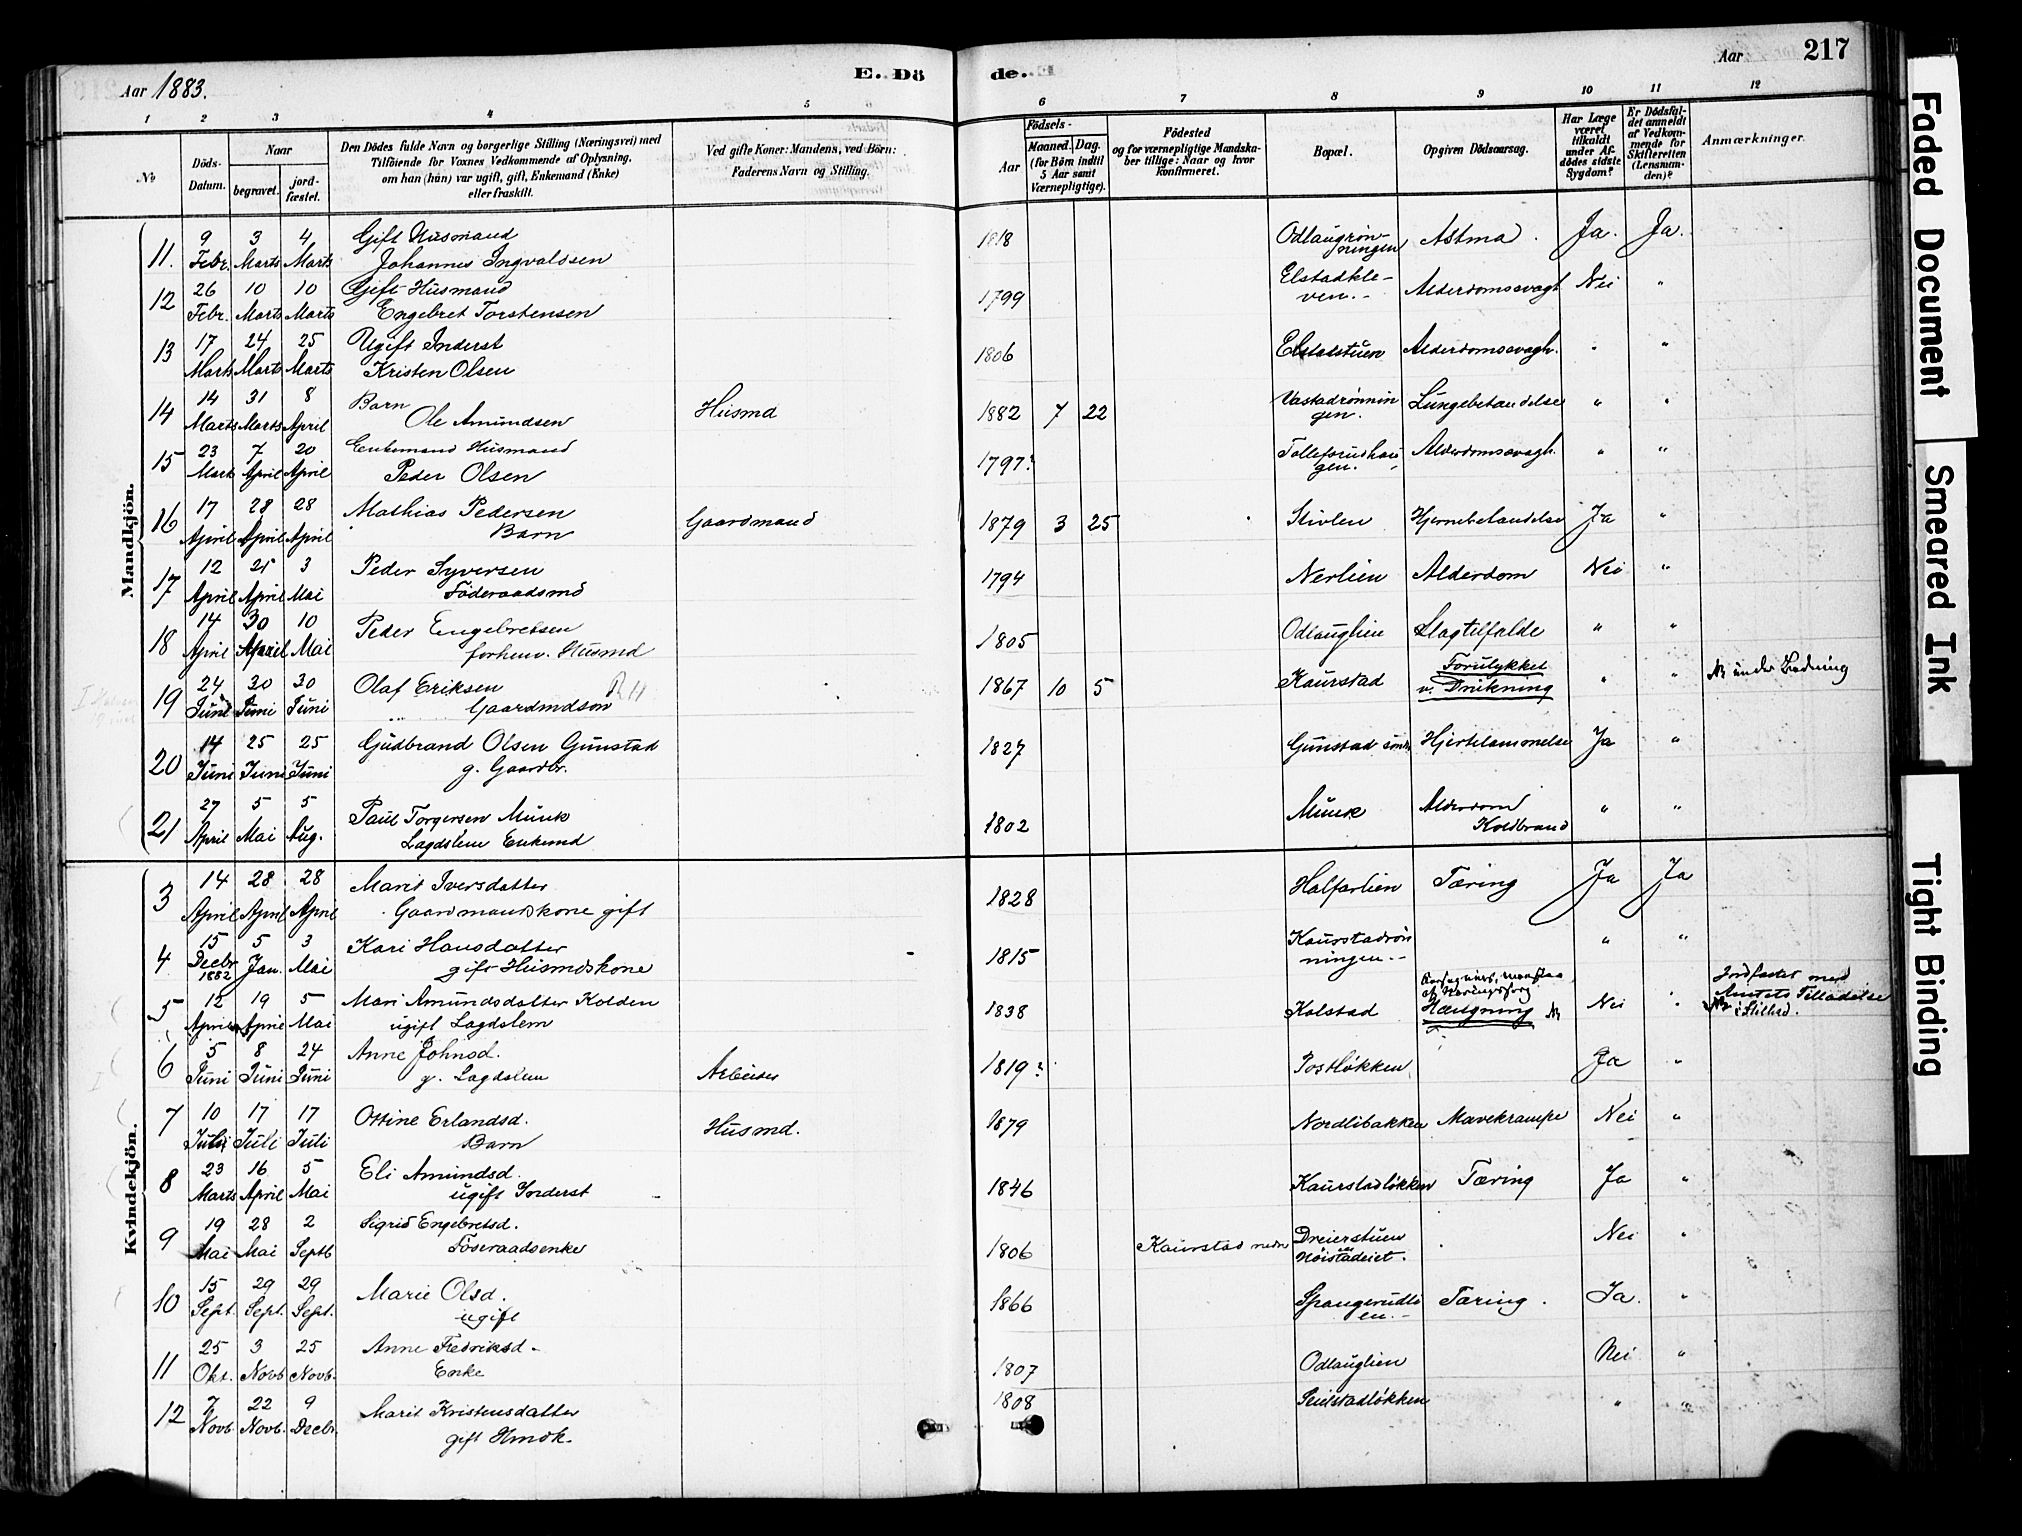 Aar 1883.
E. Dö
de.
Aar
217
1 2 3 4 5 6 7 8 9 10 11 12
No
Döds-Datum.
Naar
begravet.
jord-fæstet.
Den Dödes fulde Navn og borgerlige Stilling (Næringsvei) med
Tilföiende for Voxnes Vedkommende af Oplysning,
om han (hun) var ugift, gift, Enkemand (Enke)
eller fraskilt.
Ved gifte Koner: Mandens, ved Börn:
Faderens Navn og Stilling.
Födsels-
Aar
Maaned. Dag.
(for Börn indtil
5 Aar samt
Værnepligtige).
Födested
og for værnepligtige Mandska-
ber tillige: Naar og hvor
konfirmeret.
Bopæl.
Opgiven Dödsaarsag.
Har Læge
været
tilkaldt
under Af-
dödes sidste
Sygdom?
Er Dödsfal-
det anmeldt
af Vedkom-
mende for
Skifteretten
(Lensman-
den)?
Anmærkninger.
Mandkjön.
11. 9 Febr. 3 Marts 4 Marts Gift Husmand 1818 Odlaugrön- Astma. Ja. Ja.
Johannes Ingvaldsen ningen
12 26 Febr. 10 Marts 10 Marts Gift Husmand 1799 Elstadkle- Alderdomssvagh Nei "
Engebret Torstensen ven.-
13 17 Marts 24 Marts 25 Marts Ugift Inderst 1806 Elstadstuen Alderdomssvagh. " "
Kristen Olsen
14 14 Marts 31 Marts 8 April Barn Husmd 1882 7 22 Vastadrønnin Lungebetændelse " "
Ole Amundsen gen.
15 23 Marts 7 April 20 April Enkemand Husmand 1797? Tollefsrudhau Alderdomssvagh. " "
Peder Olsen gen.
16 17 April 28 April 28 April Mathias Pedersen Gaardmand 1879 3 25 Stivlen Hjernebetændelse Ja "
Barn
17 12 April 25 April 3 Mai Peder Syversen 1794 Nerlien Alderdom Nei "
Föderaadsmd
18 14 April 30 April 10 Mai Peder Engebretsen 1805 Odlauglien Slagtilfælde " "
forhenv. Husmd
19 24 Juni 30 Juni 30 Juni Olaf Eriksen 1867 10 5 Kaurstad Forulykket " "
Gaardmdsøn v. Drukning
20 14 Juni 25 Juni 25 Juni Gudbrand Olsen Gunstad 1827 Gunstad Hjertelammelse Ja "
g. Gaardbr.
21 27 April 5 Mai 5 Aug. Paul Torgersen Munk 1802 Munk Alderdom " "
Lagdslem Enkemd Koldbrand
Kvindekjön.
3 14 April 28 April 28 April Marit Iversdatter 1828 Halfarlien Tæring Ja Ja
Gaardmandskone gift
4 15 Decbr 1882 5 Jan. 3 Mai Kari Hansdatter 1815 Kaurstadrön " "
gift Husmdskone ningen.-
5 12 April 19 April 5 Mai Mari Amundsdatter Kolden 1838 Kolstad Hængning Nei "
ugift Lagdslem
Jordfæstet med
Amtets Tilladelse
i Stilhed.
6 5 Juni 8 Juni 24 Juni Anne Johnsd. Arbeider 1819? Postløkken Ja "
g. Lagdslem
7 10 Juli 17 Juli 17 Juli Ottine Erlandsd. Husmd. 1879 Nordlibakken Mavekrampe Nei "
Barn
8 23 Marts 16 April 5 Mai Eli Amundsd. 1846 Kaurstadløkken Tæring Ja "
ugift Inderst
9 19 Mai 28 Mai 2 Septb Sigrid Engebretsd. 1806 Kaurstad nedre Dreierstuen Nei "
Föderaadsenke
10 15 Sept. 29 Sept. 29 Sept. Marie Olsd. 1866 Spangrudli Tæring. Ja. "
ugift en.-
11 25 Okt. 3 Novb. 25 Novb. Anne Fredriksd. 1807 Odlauglien Nei "
Enke
12 7 Novb. 22 Novb. 9 Decbr. Marit Kristensdatter 1808 Seielstadløkken " "
gift Hmdk.
Faded Document
Smeared Ink
Tight Binding